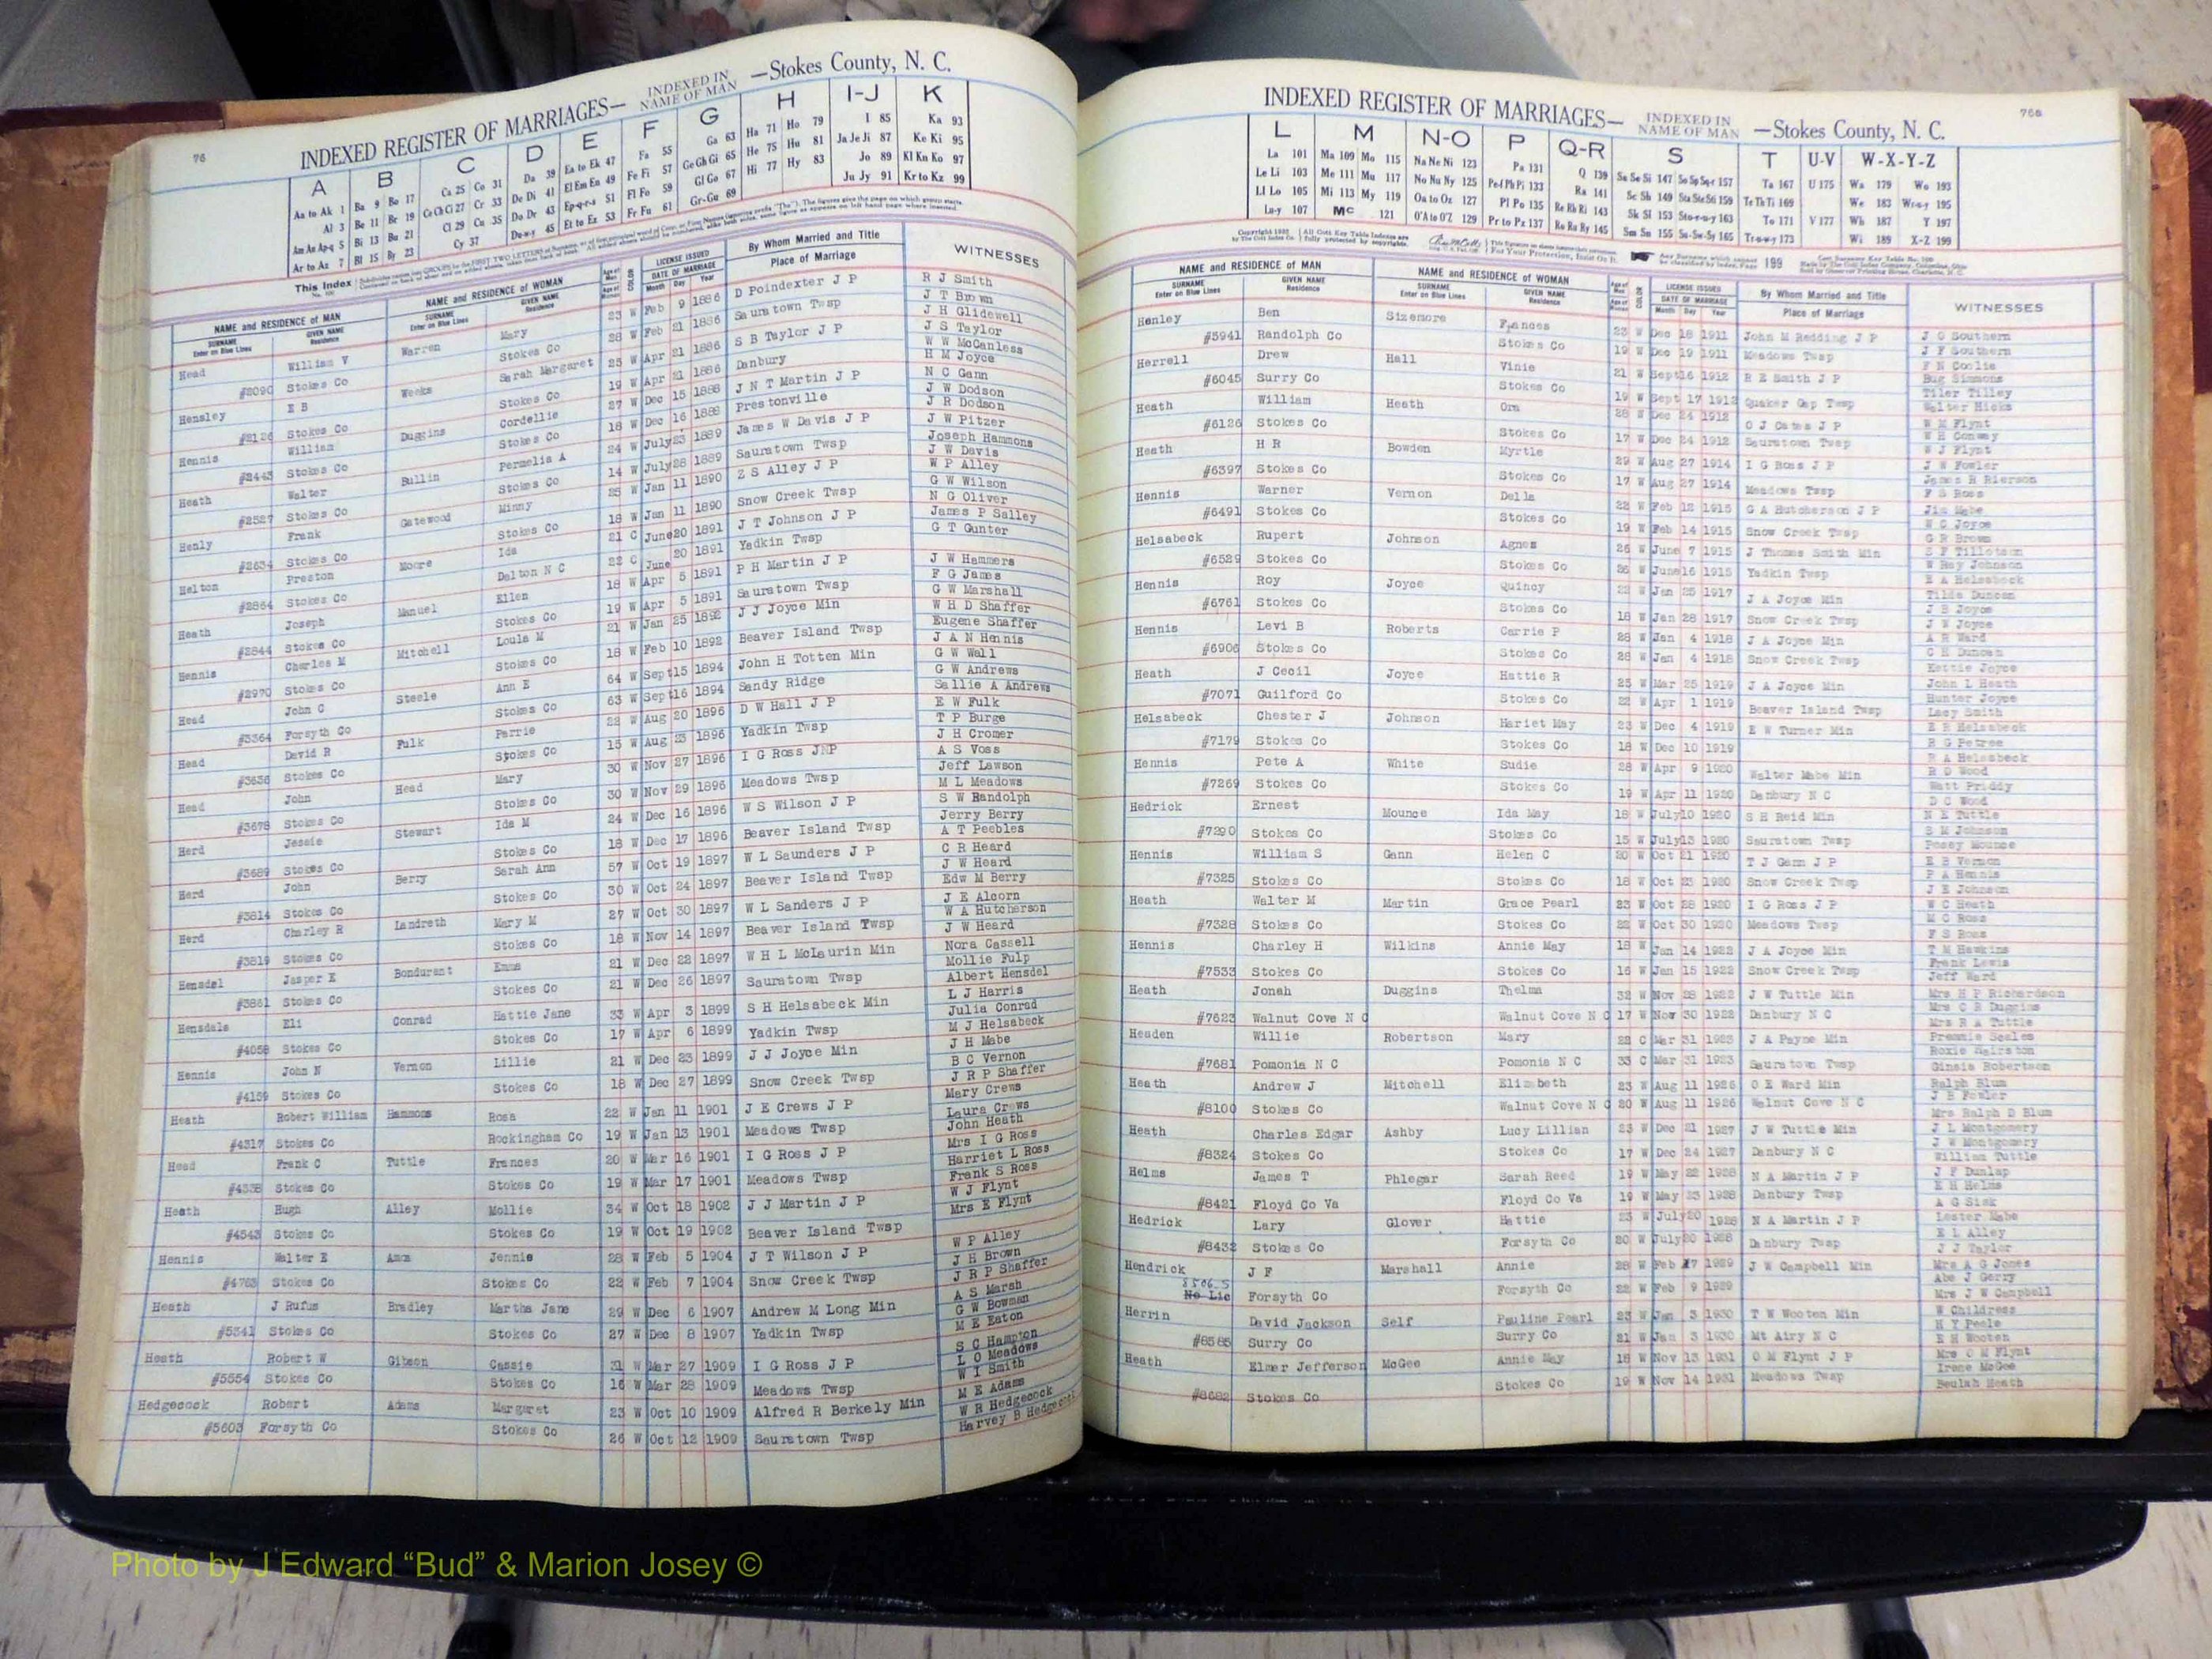 76
INDEXED REGISTER OF MARRIAGES— INDEXED IN NAME OF MAN —Stokes County, N. C.
A B C D E F G H I-J K
Aa to Ak 1 Ba 9 Bo 17 Ca 25 Co 31 Da 39 Ea to Ek 47 Fa 55 Ga 63 Ha 71 Ho 79 I 85 Ka 93
Al 3 Be 11 Br 19 Ce Ch Ci 27 Cr 33 De Di 41 El Em En 49 Fe Fi 57 Ge Gh Gi 65 He 75 Hu 81 Ja Je Ji 87 Ke Ki 95
Am An Ap-q 5 Bi 13 Bu 21 Cl 29 Cu 35 Do Dr 43 Ep-q-r-s 51 Fl Fo 59 Gl Go 67 Hi 77 Hy 83 Jo 89 Kl Kn Ko 97
Ar to Az 7 Bl 15 By 23 Cy 37 Du-w-y 45 Et to Ez 53 Fr Fu 61 Gr-Gu 69 Ju Jy 91 Kr to Kz 99
NAME and RESIDENCE of MAN NAME and RESIDENCE of WOMAN LICENSE ISSUED By Whom Married and Title WITNESSES
SURNAME Enter on Blue Lines GIVEN NAME Residence SURNAME Enter on Blue Lines GIVEN NAME Residence COLOR DATE OF MARRIAGE Month Day Year Place of Marriage
Head William V Warren Mary 23 W Feb 9 1886 D Poindexter J P R J Smith
#2090 Stokes Co Stokes Co 28 W Feb 21 1886 Sauratown Twsp J T Brown
J H Glidewell
Hensley E B Weeks Sarah Margaret 25 W Apr 21 1886 S B Taylor J P J S Taylor
#2126 Stokes Co Stokes Co 19 W Apr 21 1886 Danbury W W McCanless
H M Joyce
Hennis William Duggins Cordellie 27 W Dec 15 1888 J N T Martin J P N C Gann
#2443 Stokes Co Stokes Co 18 W Dec 16 1888 Prestonville J W Dodson
J R Dodson
Heath Walter Bullin Permelia A 24 W July 23 1889 James W Davis J P J W Pitzer
#2527 Stokes Co Stokes Co 14 W July 28 1889 Sauratown Twsp Joseph Hammons
J W Davis
Henly Frank Gatewood Minny 25 W Jan 11 1890 Z S Alley J P W P Alley
#2634 Stokes Co Stokes Co 18 W Jan 11 1890 Snow Creek Twsp G W Wilson
N G Oliver
Helton Preston Moore Ida 21 C June 20 1891 J T Johnson J P James P Salley
#2864 Stokes Co Dalton N C 22 C June 20 1891 Yadkin Twsp G T Gunter
Heath Joseph Manuel Ellen 18 W Apr 5 1891 P H Martin J P J W Hammers
#2844 Stokes Co Stokes Co 19 W Apr 5 1891 Sauratown Twsp F G James
G W Marshall
Hennis Charles M Mitchell Loula M 21 W Jan 25 1892 J J Joyce Min W H D Shaffer
#2970 Stokes Co Stokes Co 18 W Feb 10 1892 Beaver Island Twsp Eugene Shaffer
J A N Hennis
Head John C Steele Ann E 64 W Sept 15 1894 John H Totten Min G W Wall
#3364 Forsyth Co Stokes Co 63 W Sept 16 1894 Sandy Ridge G W Andrews
Sallie A Andrews
Head David R Fulk Perrie 22 W Aug 20 1896 D W Hall J P E W Fulk
#3636 Stokes Co Stokes Co 15 W Aug 23 1896 Yadkin Twsp T P Burge
J H Cromer
Head John Head Mary 30 W Nov 27 1896 I G Ross J P A S Voss
#3678 Stokes Co Stokes Co 30 W Nov 29 1896 Meadows Twsp Jeff Lawson
M L Meadows
Herd Jessie Stewart Ida M 24 W Dec 16 1896 W S Wilson J P S W Randolph
#3689 Stokes Co Stokes Co 18 W Dec 17 1896 Beaver Island Twsp Jerry Berry
A T Peebles
Herd John Berry Sarah Ann 57 W Oct 19 1897 W L Saunders J P C R Heard
#3814 Stokes Co Stokes Co 30 W Oct 24 1897 Beaver Island Twsp J W Heard
Edw M Berry
Herd Charley R Landreth Mary M 27 W Oct 30 1897 W L Sanders J P J E Alcorn
#3819 Stokes Co Stokes Co 18 W Nov 14 1897 Beaver Island Twsp W A Hutcherson
J W Heard
Hensdel Jasper E Bondurant Emma 21 W Dec 22 1897 W H L McLaurin Min Nora Cassell
#3861 Stokes Co Stokes Co 21 W Dec 26 1897 Sauratown Twsp Mollie Fulp
Albert Hensdel
Hensdale Eli Conrad Hattie Jane 33 W Apr 3 1899 S H Helsabeck Min L J Harris
#4058 Stokes Co Stokes Co 17 W Apr 6 1899 Yadkin Twsp Julia Conrad
M J Helsabeck
Hennis John N Vernon Lillie 21 W Dec 23 1899 J J Joyce Min J H Mabe
#4159 Stokes Co Stokes Co 18 W Dec 27 1899 Snow Creek Twsp B C Vernon
J R P Shaffer
Heath Robert William Hammons Rosa 22 W Jan 11 1901 J E Crews J P Mary Crews
#4317 Stokes Co Rockingham Co 19 W Jan 13 1901 Meadows Twsp Laura Crews
John Heath
Head Frank C Tuttle Frances 20 W Mar 16 1901 I G Ross J P Mrs I G Ross
#4338 Stokes Co Stokes Co 19 W Mar 17 1901 Meadows Twsp Harriet L Ross
Frank S Ross
Heath Hugh Alley Mollie 34 W Oct 18 1902 J J Martin J P W J Flynt
#4543 Stokes Co Stokes Co 19 W Oct 19 1902 Beaver Island Twsp Mrs E Flynt
W P Alley
Hennis Walter E Amos Jennie 28 W Feb 5 1904 J T Wilson J P J H Brown
#4763 Stokes Co Stokes Co 22 W Feb 7 1904 Snow Creek Twsp J R P Shaffer
Heath J Rufus Bradley Martha Jane 29 W Dec 6 1907 Andrew M Long Min A S Marsh
#5341 Stokes Co Stokes Co 27 W Dec 8 1907 Yadkin Twsp G W Bowman
M E Eaton
Heath Robert W Gibson Cassie 31 W Mar 27 1909 I G Ross J P S C Hampton
#5554 Stokes Co Stokes Co 16 W Mar 28 1909 Meadows Twsp L O Meadows
W I Smith
Hedgecock Robert Adams Margaret 23 W Oct 10 1909 Alfred R Berkely Min M E Adams
#5603 Forsyth Co Stokes Co 26 W Oct 12 1909 Sauratown Twsp W R Hedgecock
Harvey B Hedgecock
76a
INDEXED REGISTER OF MARRIAGES— INDEXED IN NAME OF MAN —Stokes County, N. C.
L M N-O P Q-R S T U-V W-X-Y-Z
La 101 Ma 109 Mo 115 Na Ne Ni 123 Pa 131 Q 139 Sa Se Si 147 So Sp Sq-r 157 Ta 167 U 175 Wa 179 Wo 193
Le Li 103 Me 111 Mu 117 No Nu Ny 125 Pe-f Ph Pi 133 Ra 141 Sc Sh 149 Sta Ste Sti 159 Te Th Ti 169 We 183 Wr-u-y 195
Ll Lo 105 Mi 113 My 119 Oa to Oz 127 Pl Po 135 Re Rh Ri 143 Sk Sl 153 Sto-r-u-y 163 To 171 V 177 Wh 187 Y 197
Lu-y 107 Mc 121 O'A to O'Z 129 Pr to Pz 137 Ro Ru Ry 145 Sm Sn 155 Su-Sw-Sy 165 Tr-u-w-y 173 Wi 189 X-Z 199
NAME and RESIDENCE of MAN NAME and RESIDENCE of WOMAN LICENSE ISSUED By Whom Married and Title WITNESSES
SURNAME Enter on Blue Lines GIVEN NAME Residence SURNAME Enter on Blue Lines GIVEN NAME Residence COLOR DATE OF MARRIAGE Month Day Year Place of Marriage
Henley Ben Sizemore Frances 23 W Dec 18 1911 John M Redding J P J G Southern
#5941 Randolph Co Stokes Co 19 W Dec 19 1911 Meadows Twsp J F Southern
F N Coolie
Herrell Drew Hall Vinie 21 W Sept 16 1912 R E Smith J P Bug Simmons
#6045 Surry Co Stokes Co 19 W Sept 17 1912 Quaker Gap Twsp Tiler Tilley
Walter Hicks
Heath William Heath Ora 28 W Dec 24 1912 O J Cates J P W M Flynt
#6126 Stokes Co Stokes Co 17 W Dec 24 1912 Sauratown Twsp W R Conway
W J Flynt
Heath H R Bowden Myrtle 29 W Aug 27 1914 I G Ross J P J W Fowler
#6397 Stokes Co Stokes Co 17 W Aug 27 1914 Meadows Twsp James R Rierson
F S Ross
Hennis Warner Vernon Della 22 W Feb 12 1915 G A Hutcherson J P Jim Mabe
#6491 Stokes Co Stokes Co 19 W Feb 14 1915 Snow Creek Twsp W C Joyce
G R Brown
Helsabeck Rupert Johnson Agnes 26 W June 7 1915 J Thomas Smith Min S F Tillotson
#6529 Stokes Co Stokes Co 26 W June 16 1915 Yadkin Twsp W Ray Johnson
E A Helsabeck
Hennis Roy Joyce Quincy 22 W Jan 25 1917 J A Joyce Min Tilda Duncan
#6761 Stokes Co Stokes Co 18 W Jan 28 1917 Snow Creek Twsp J B Joyce
J W Joyce
Hennis Levi B Roberts Carrie P 28 W Jan 4 1918 J A Joyce Min A R Ward
#6906 Stokes Co Stokes Co 28 W Jan 4 1918 Snow Creek Twsp C H Duncan
Hattie Joyce
Heath J Cecil Joyce Hattie R 25 W Mar 25 1919 J A Joyce Min John L Heath
#7071 Guilford Co Stokes Co 22 W Apr 1 1919 Beaver Island Twsp Hunter Joyce
Lacy Smith
Helsabeck Chester J Johnson Hariet May 23 W Dec 4 1919 E W Turner Min E R Helsabeck
#7179 Stokes Co Stokes Co 18 W Dec 10 1919 R G Petree
R A Helsabeck
Hennis Pete A White Sudie 28 W Apr 9 1920 Walter Mabe Min R D Wood
#7269 Stokes Co Stokes Co 19 W Apr 11 1920 Danbury N C Watt Priddy
D C Wood
Hedrick Ernest Mounce Ida May 18 W July 10 1920 S H Reid Min N E Tuttle
#7290 Stokes Co Stokes Co 15 W July 13 1920 Sauratown Twsp S M Johnson
Posey Mounce
Hennis William S Gann Helen C 20 W Oct 21 1920 T J Gann J P E B Vernon
#7325 Stokes Co Stokes Co 18 W Oct 23 1920 Snow Creek Twsp P A Hennis
J E Johnson
Heath Walter M Martin Grace Pearl 23 W Oct 28 1920 I G Ross J P W C Heath
#7328 Stokes Co Stokes Co 22 W Oct 30 1920 Meadows Twsp M C Ross
F S Ross
Hennis Charley H Wilkins Annie May 18 W Jan 14 1922 J A Joyce Min T M Hawkins
#7533 Stokes Co Stokes Co 16 W Jan 15 1922 Snow Creek Twsp Frank Lewis
Jeff Ward
Heath Jonah Duggins Thelma 32 W Nov 28 1922 J W Tuttle Min Mrs H P Richardson
#7623 Walnut Cove N C Walnut Cove N C 17 W Nov 30 1922 Danbury N C Mrs C R Duggins
Mrs R A Tuttle
Headen Willie Robertson Mary 22 C Mar 31 1923 J A Payne Min Premnie Scales
#7681 Pomonia N C Pomonia N C 33 C Mar 31 1923 Sauratown Twsp Roxie Hairston
Ginsie Robertson
Heath Andrew J Mitchell Elizabeth 23 W Aug 11 1926 O E Ward Min Ralph Blum
#8100 Stokes Co Walnut Cove N C 20 W Aug 11 1926 Walnut Cove N C J B Fowler
Mrs Ralph D Blum
Heath Charles Edgar Ashby Lucy Lillian 23 W Dec 21 1927 J W Tuttle Min J L Montgomery
#8324 Stokes Co Stokes Co 17 W Dec 24 1927 Danbury N C J W Montgomery
William Tuttle
Helms James T Phlegar Sarah Reed 19 W May 22 1928 N A Martin J P J F Dunlap
#8421 Floyd Co Va Floyd Co Va 19 W May 23 1928 Danbury Twsp E H Helms
A G Sisk
Hedrick Lary Glover Hattie 23 W July 20 1928 N A Martin J P Lester Mabe
#8432 Stokes Co Forsyth Co 20 W July 20 1928 Danbury Twsp E L Alley
J J Taylor
Hendrick J F Marshall Annie 28 W Feb 7 1929 J W Campbell Min Mrs A G Jones
8506.5
No Lic Forsyth Co Forsyth Co 22 W Feb 9 1929 Abe J Gerry
Mrs J W Campbell
Herrin David Jackson Self Pauline Pearl 23 W Jan 3 1930 T W Wooten Min W Childress
#8585 Surry Co Surry Co 21 W Jan 3 1930 Mt Airy N C H Y Peele
E H Wooten
Heath Elmer Jefferson McGee Annie May 18 W Nov 13 1931 O M Flynt J P Mrs O M Flynt
#8682 Stokes Co Stokes Co 19 W Nov 14 1931 Meadows Twsp Irene McGee
Beulah Heath
Photo by J Edward “Bud” & Marion Josey ©